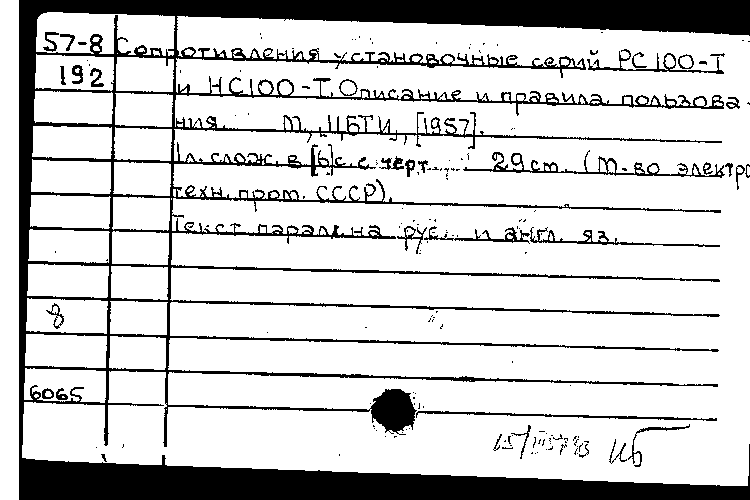 57-8 Сопротивления установочные серий РС100-Т
192 и НС100-Т. Описание и правила пользова-
ния. М, ЦБТИ, [1957].
1л. слож. в [6]с. с черт. 29см. (М-во электро
техн. пром. СССР).
Текст паралл. на рус. и англ. яз.
8
6065